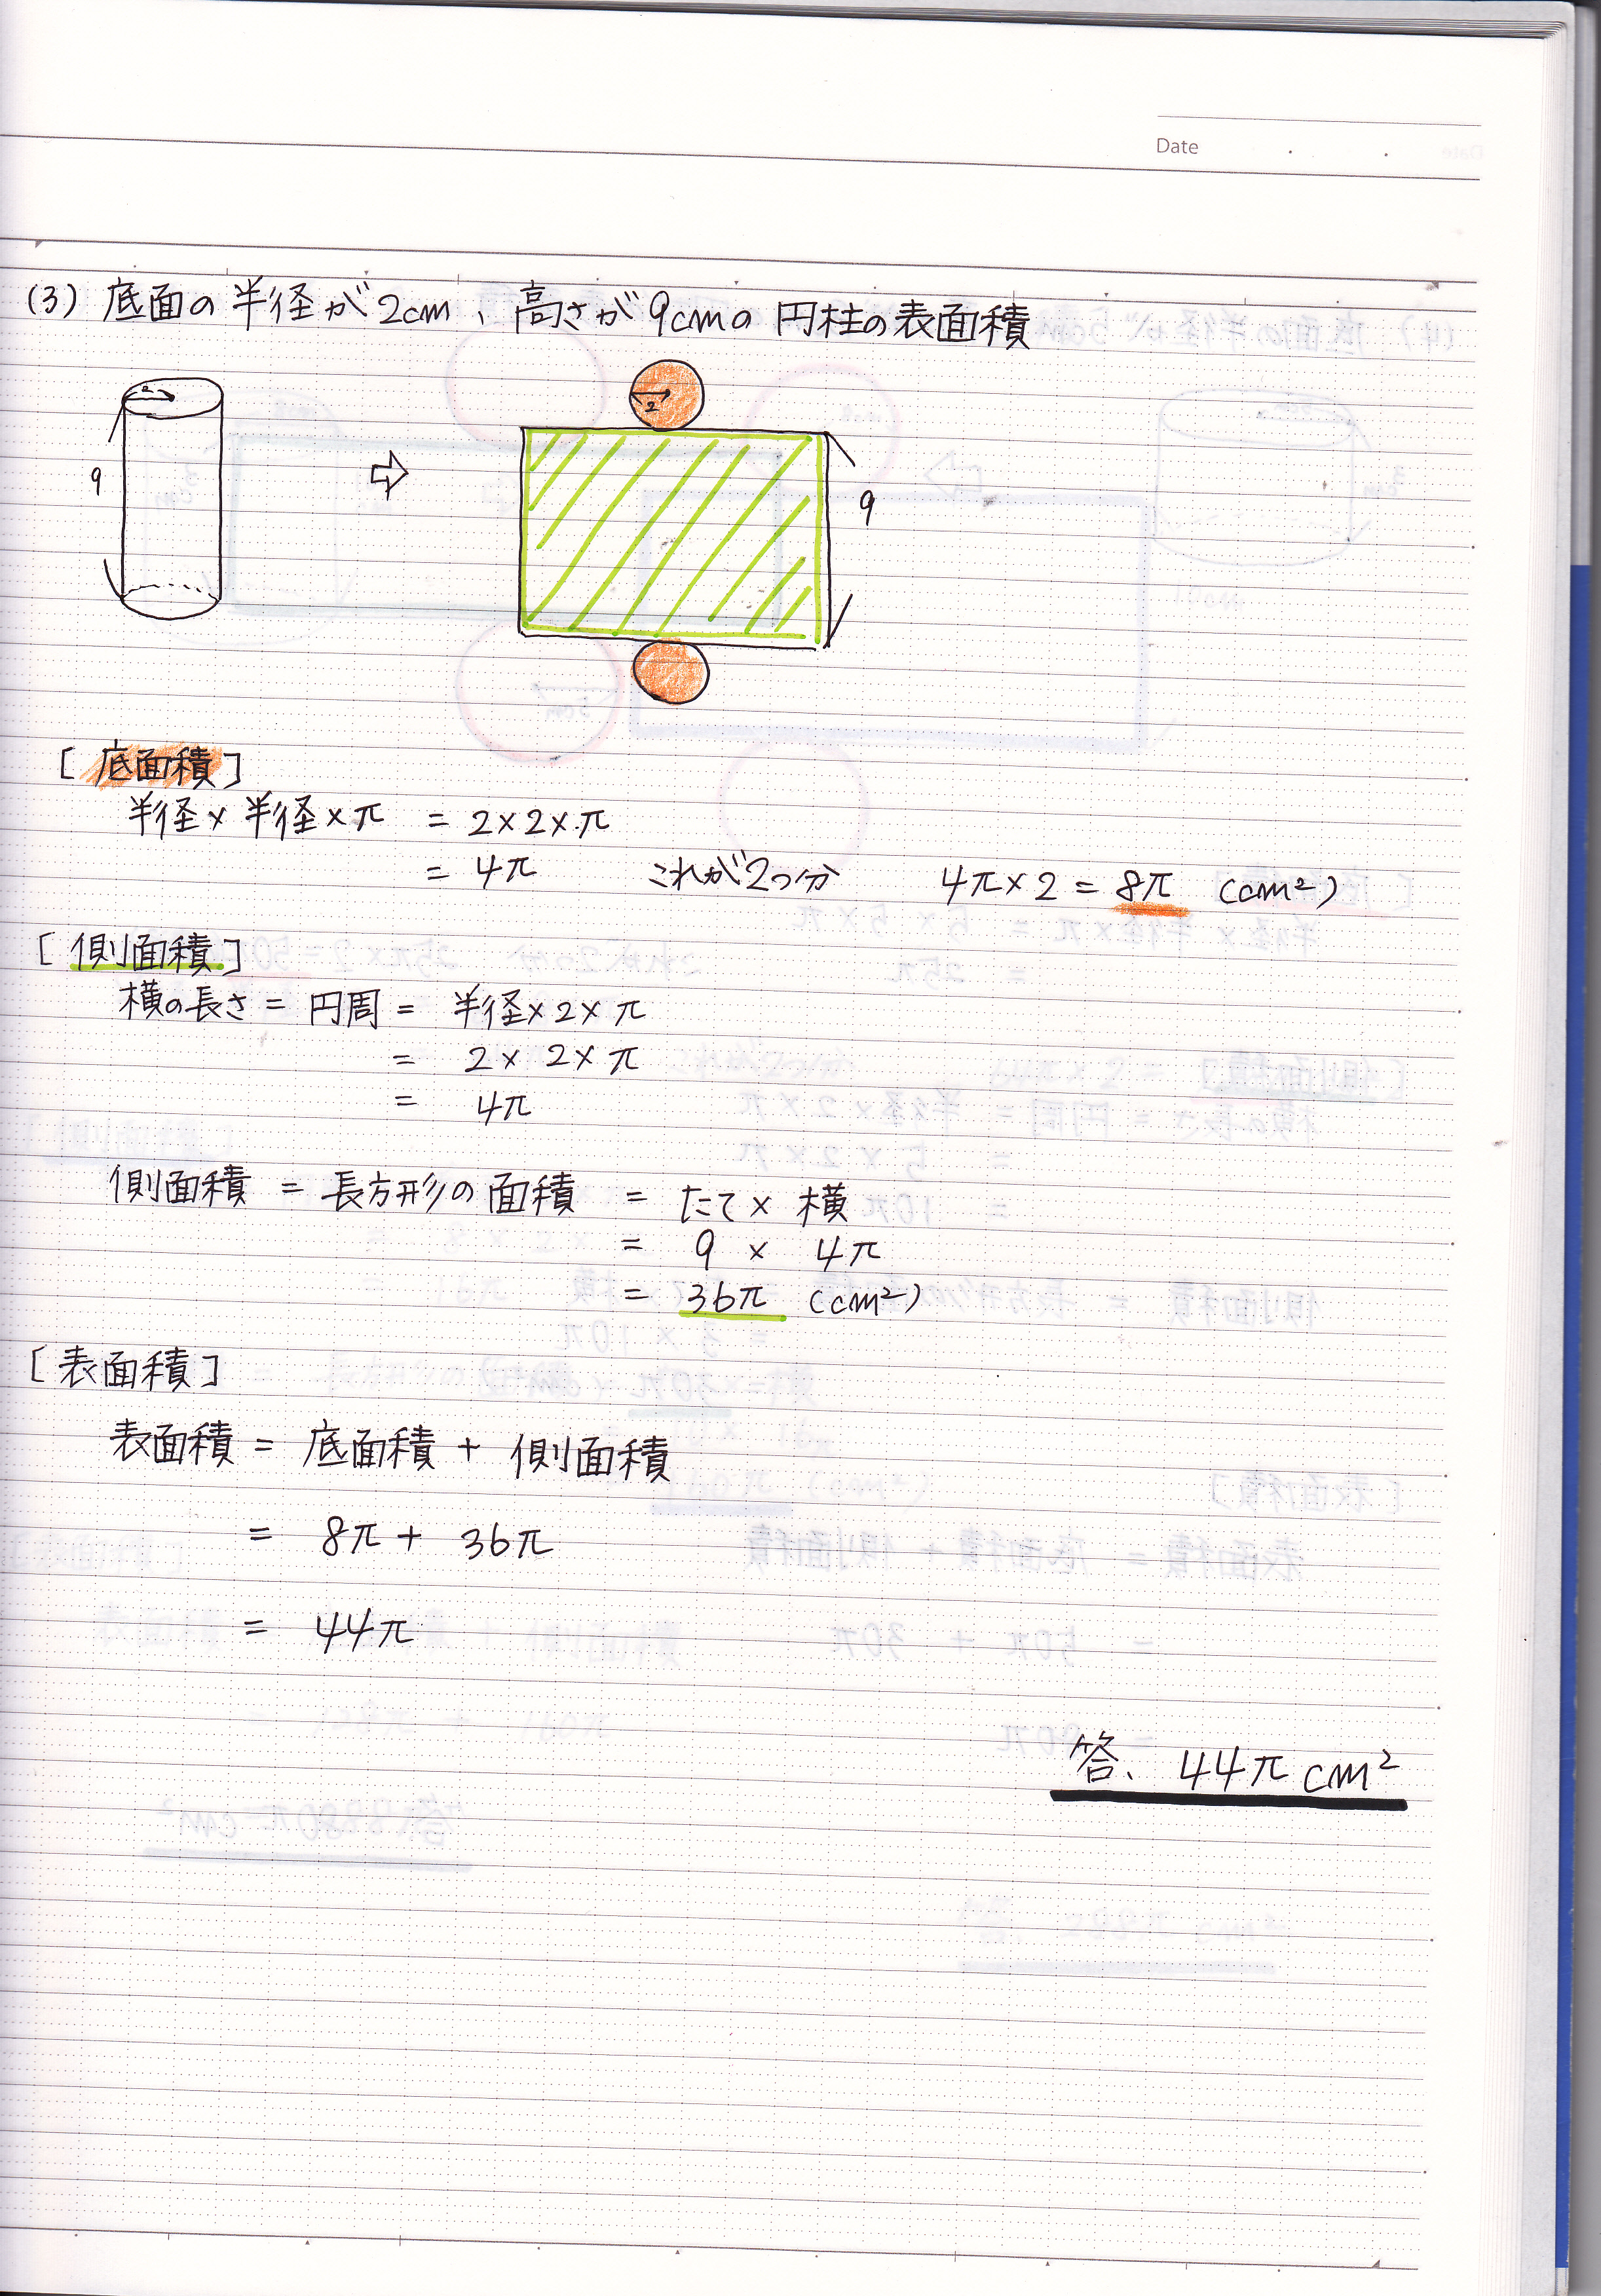 Date
(3) 底面の半径が2cm、高さが9cmの円柱の表面積
2
9
2
9
[底面積]
半径×半径×π = 2×2×π
= 4π これが2つ分 4π×2 = 8π (cm²)
[側面積]
横の長さ = 円周 = 半径×2×π
= 2×2×π
= 4π
側面積 = 長方形の面積 = たて×横
= 9 × 4π
= 36π (cm²)
[表面積]
表面積 = 底面積 + 側面積
= 8π + 36π
= 44π
答、44π cm²